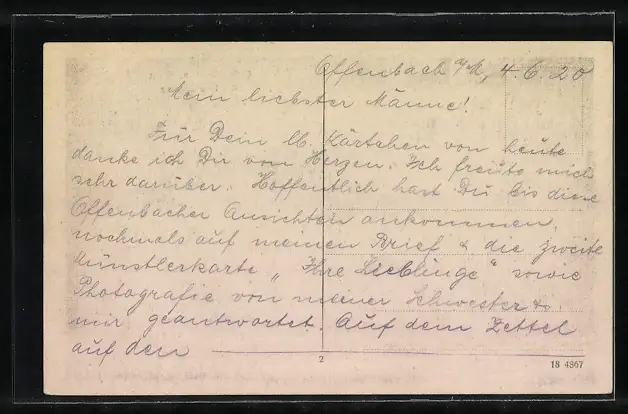 Offenbach a/M, 4.6.20
Mein liebster Männe!
Für Dein lb. Kärtchen von heute
danke ich Dir von Herzen. Ich freute mich
sehr darüber. Hoffentlich hast Du bis diese
Offenbacher Ansichten ankommen,
nochmals auf meinen Brief & die zweite
Künstlerkarte „Ihre Lieblinge“ sowie
Photografie von meiner Schwester &
mir geantwortet. Auf dem Zettel
auf den
2
18 4867